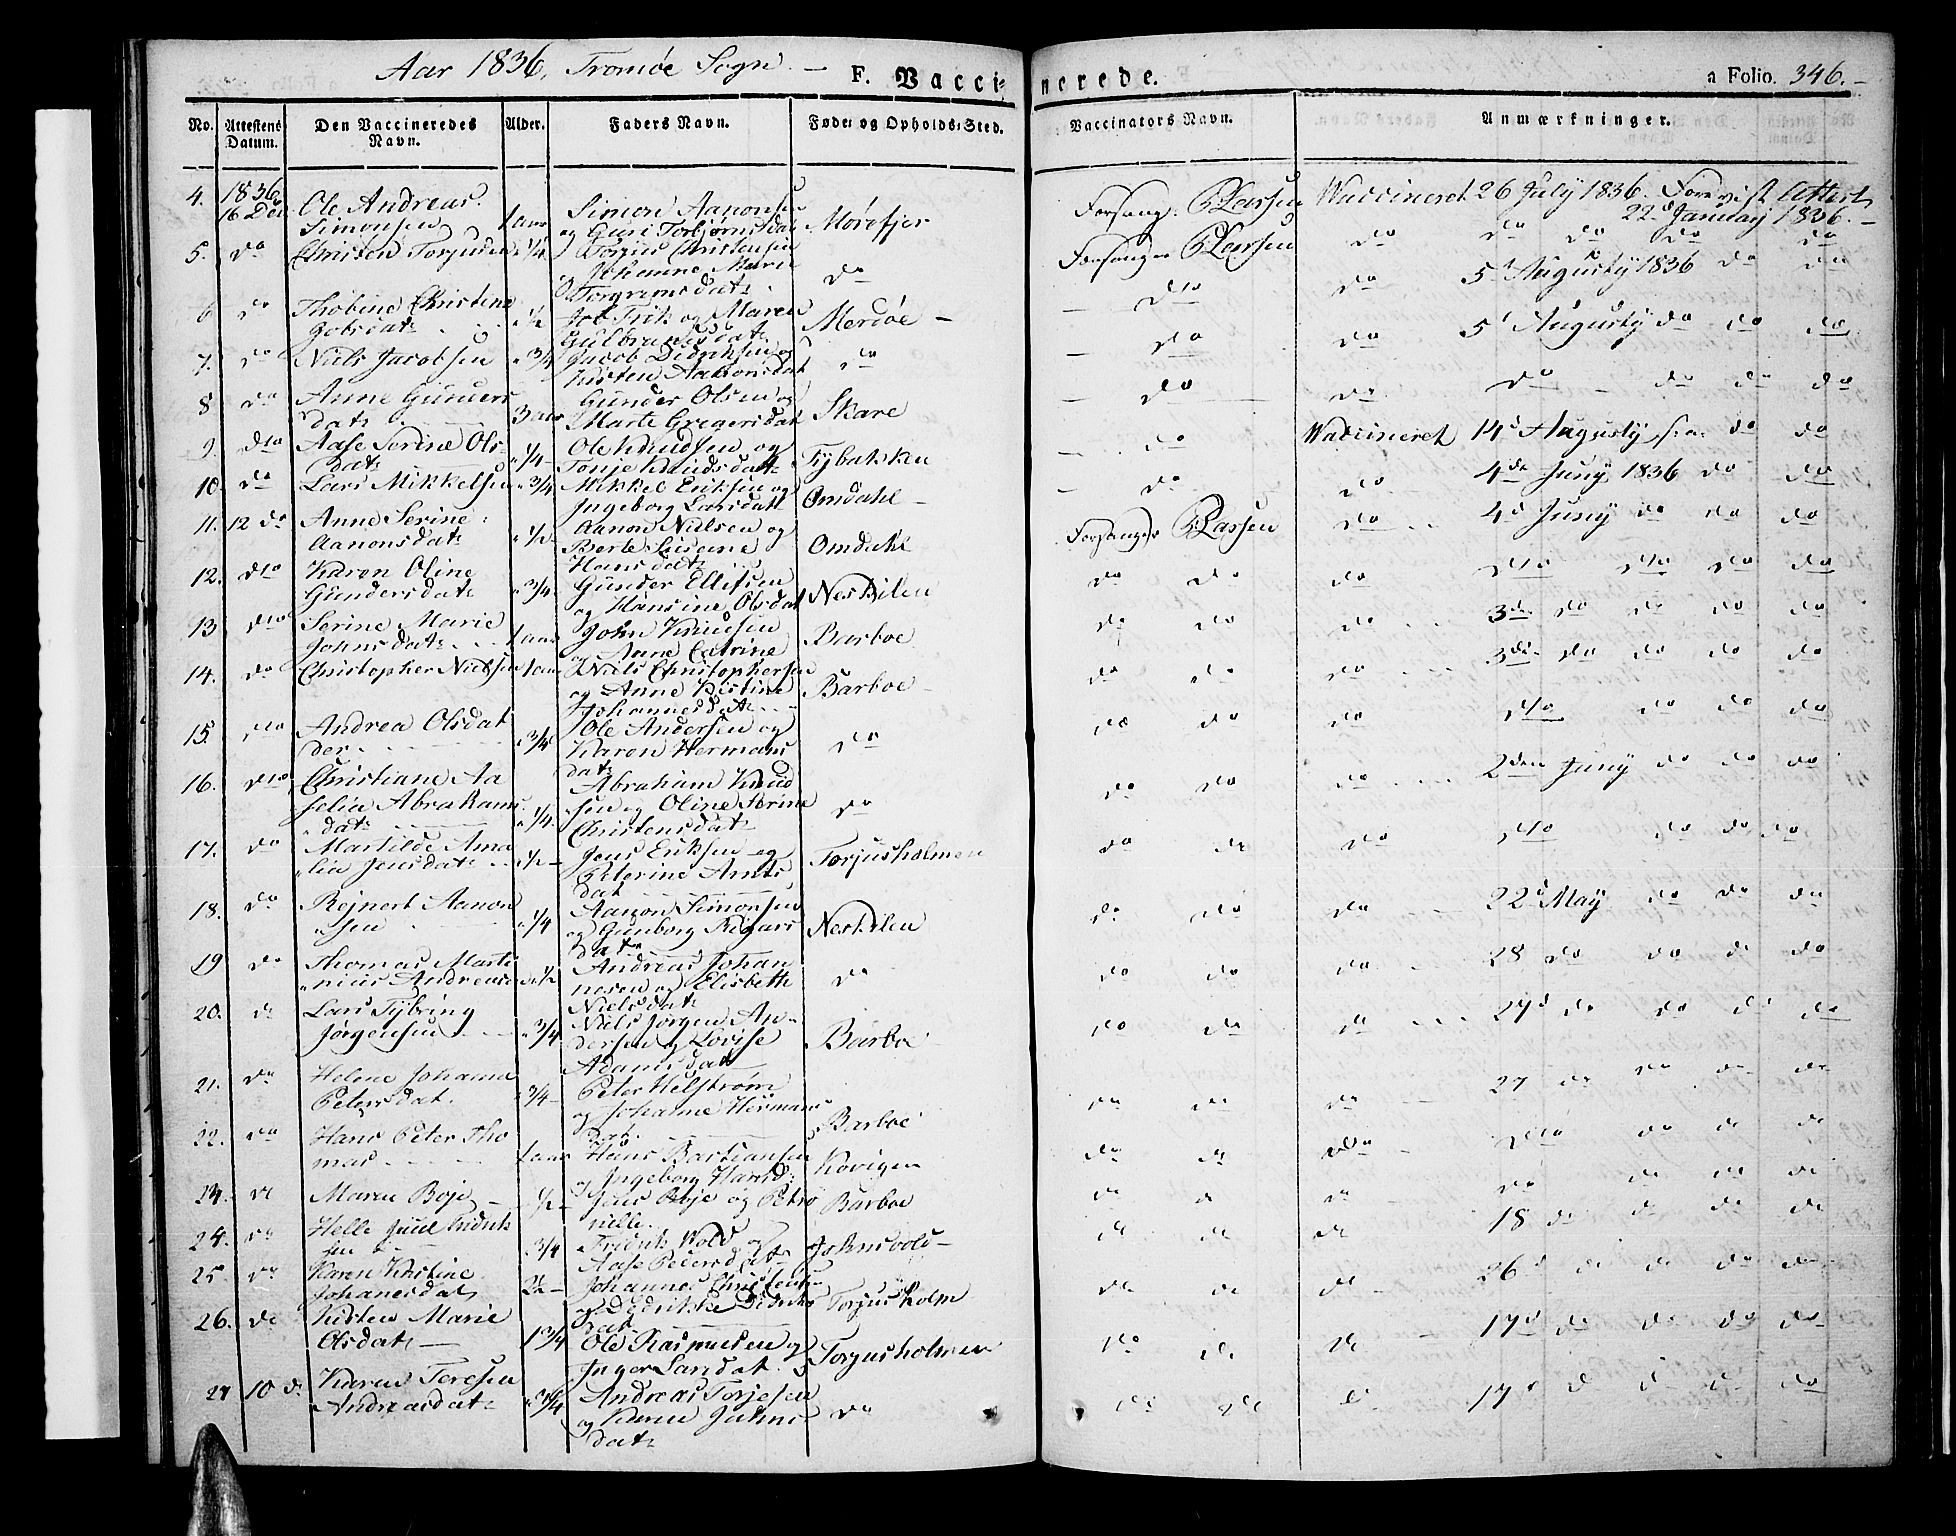 Aar 1836, Tromøe Sogn. — F. Vaccinerede. a Folio. 346.
No. Attestens Datum. Den Vaccineredes Navn. Alder. Faders Navn. Føde- og Opholds-Sted. Vaccinators Navn. Anmærkninger.
4. 1836 16 Dec Ole Andreas Simonsen 1 aar Simon Aanonsen og Guri Torbjørnsdat Mørefjer Forsanger Larsen Vaccineret 26 July 1836. Forevist Attest 22 January 1836.
5. do Christen Torjusen 1/4 Torjus Christensen og Johanne Marie Torgremsdat do Forsanger Larsen do do do do do
6 do Thobine Christine Jobsdat 1/2 Job Frik og Maren Gulbransdat Merdøe — dto do 5 Augusty 1836 do do
7. do Niels Jacobsen 3/4 Jacob Didriksen og Kirsten Aanonsdat do — do do 5 Augusty do do do
8 do Anne Gunders dat 3 aar Gunder Olsen og Marte Gregersdat Skare — do do do do do do
9. dto Aase Serine Ols dat 1/4 Ole Knudsen og Tonje Knudsdat Tybakken — do Vaccineret 14 Augusty do do
10. do Lars Mikkelsen 3/4 Mikkel Eriksen og Ingeborg Larsdatt Omdahl — do do 4de Juny 1836 do do
11. 12 do Anne Serine Aanonsdat 1/2 Aanon Nielsen og Berte Susanne Hansdat Omdahl Forsanger Larsen do 4d Juny do do do
12. dto Karen Oline Gundersdat 3/4 Gunder Ellifsen og Hansine Olsdat Neskilen do do do dto dto do do
13 dto Serine Marie Johnsdat 1 aar John Knudsen og Anne Catrine Barboe do do do 3die do do do do
14. do Christopher Nielsen 1 aar Niels Christophersen og Anne Kistine Johannesdat Barboe do do do 3die do do do do
15. dto Andrea Olsdat der 3/4 Ole Andersen og Karen Hermans dat do do do do dto do do do
16. dto Christiane Aaselia Abrahams dat 1/4 Abraham Knudsen og Oline Serine Christensdat do do do do 2den Juny do do do
17. do Martilde Amalia Jensdat 1/2 Jens Eriksen og Peterine Arnts dat Torjusholmen do do do dto do do do
18. do Rejnert Aanonsen 1/4 Aanon Simonsen og Gunborg dat Neskilen do do do 22d May do do do
19 do Thomas Martinius Andreas 1/2 Andreas Johannesen og Elisbeth Nielsdat do do do do 28 do do do do
20. do Lars Tybring Jørgensen 3/4 Niels Jørgen Andersen og Lovise Adamsdat Barboe do do do 27d do do do do
21. do Helene Johanne Petersdat. 3/4 Peter Helstrøm og Johanne Hermans dat. Barboe do do do 27 do do do do
22. do Hans Peter Thomas 1 aar Hans Bastiansen og Ingeborg Hansd: Kovigen do do do dto do do do
24. do Maren Boje 1/2 Jens Boje og Petronille. Barboe do do do do do do do
24. do Helle Juul Fridriksen 3/4 Fridrik Wold og Aase Pedersdat Johnsvold do do do 18 do do do do
25. do Karen Kistine Johanesdat 2 1/2 Johannes Christensen og Didrikke Didriks dat Torjusholm do do do 26d do do do do
26. do Kirsten Marie Olsdat 1 3/4 Ole Rasmusen og Inger Larsdat. Torjusholmen do do do 17d do do do do
27 10 d. Karen Teresea Andreasdat 3/4 Andreas Torjesen og Karen Johns dat do do do do 17d do do do do